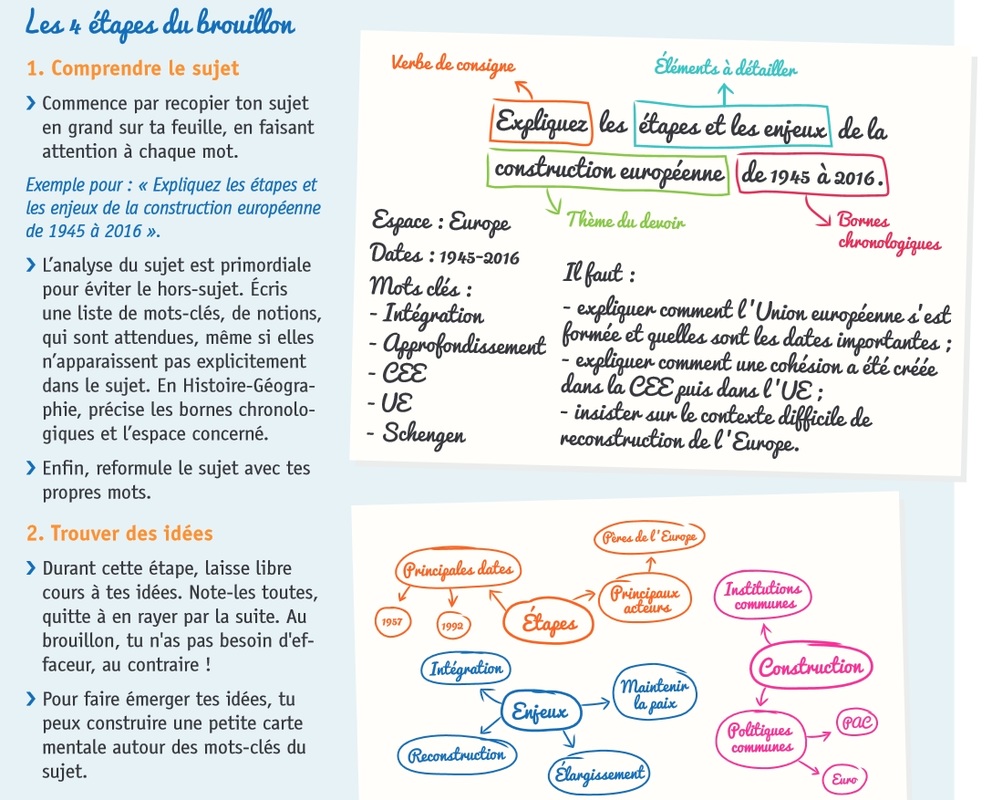 Les 4 étapes du brouillon
1. Comprendre le sujet
Commence par recopier ton sujet
en grand sur ta feuille, en faisant
attention à chaque mot.
Exemple pour : « Expliquez les étapes et
les enjeux de la construction européenne
de 1945 à 2016 ».
L'analyse du sujet est primordiale
pour éviter le hors-sujet. Écris
une liste de mots-clés, de notions,
qui sont attendues, même si elles
n'apparaissent pas explicitement
dans le sujet. En Histoire-Géogra-
phie, précise les bornes chronolo-
giques et l'espace concerné.
Enfin, reformule le sujet avec tes
propres mots.
2. Trouver des idées
Durant cette étape, laisse libre
cours à tes idées. Note-les toutes,
quitte à en rayer par la suite. Au
brouillon, tu n'as pas besoin d'ef-
facer, au contraire !
Pour faire émerger tes idées, tu
peux construire une petite carte
mentale autour des mots-clés du
sujet.
Verbe de consigne
Éléments à détailler
Expliquez les étapes et les enjeux de la
construction européenne de 1945 à 2016.
Thème du devoir
Bornes
chronologiques
Espace : Europe
Dates : 1945-2016
Mots clés :
- Intégration
- Approfondissement
- CEE
- UE
- Schengen
Il faut :
- expliquer comment l'Union européenne s'est
formée et quelles sont les dates importantes ;
- expliquer comment une cohésion a été créée
dans la CEE puis dans l'UE ;
- insister sur le contexte difficile de
reconstruction de l'Europe.
Pères de l'Europe
Principales dates
Principaux
acteurs
1957
1992
Étapes
Institutions
communes
Construction
Intégration
Maintenir
la paix
Enjeux
Reconstruction
Élargissement
Politiques
communes
PAC
Euro